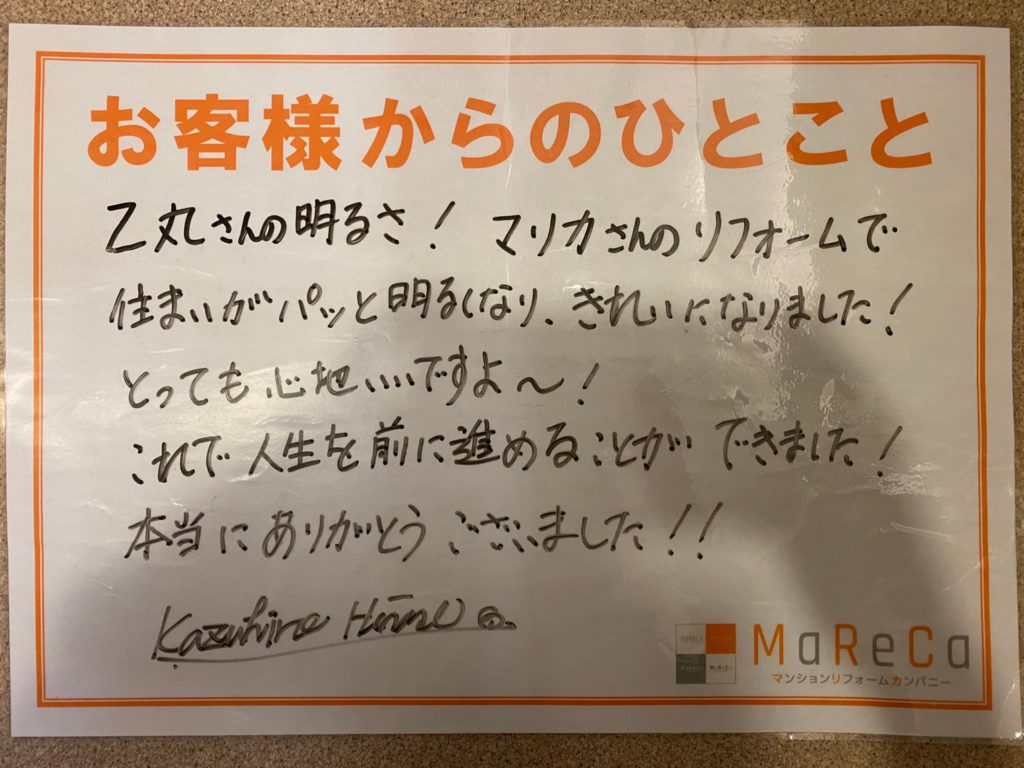 お客様からのひとこと
乙丸さんの明るさ! マリカさんのリフォームで
住まいがパッと明るくなり、きれいになりました!
とっても心地いいですよ～!
これで人生を前に進めることができました!
本当にありがとうございました!!
Kazuhiro
MaReCa
マンションリフォームカンパニー